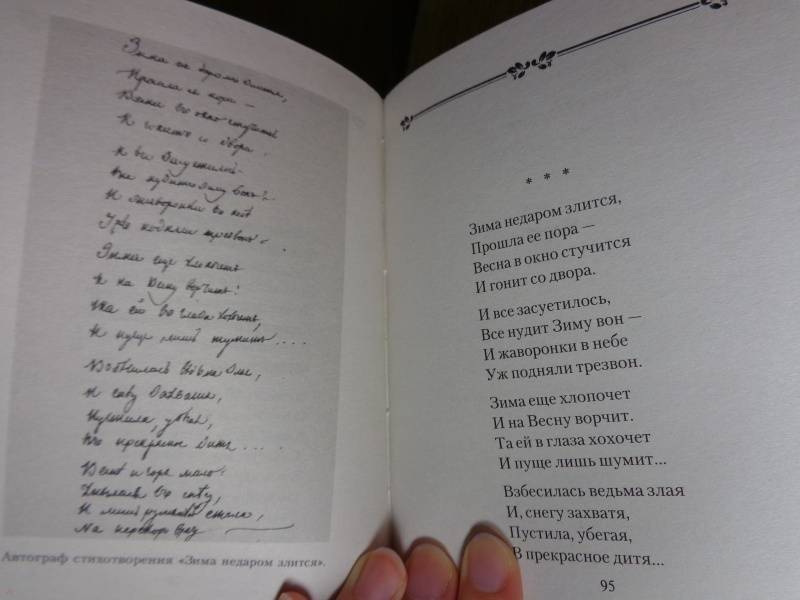 Зима недаром злится,
Прошла ее пора —
Весна в окно стучится
И гонит со двора.
И все засуетилось,
Все нудит Зиму вон —
И жаворонки в небе
Уж подняли трезвон.
Зима еще хлопочет
И на Весну ворчит!
Та ей в глаза хохочет,
И пуще лишь шумит....
Взбесилась ведьма злая,
И снегу захватя,
Пустила, убегая,
Въ прекрасное дитя...
Весне и горя мало:
Умылася в снегу,
И лишь румяней стала,
На перекор врагу
Автограф стихотворения «Зима недаром злится».
* * *
Зима недаром злится,
Прошла ее пора —
Весна в окно стучится
И гонит со двора.
И все засуетилось,
Все нудит Зиму вон —
И жаворонки в небе
Уж подняли трезвон.
Зима еще хлопочет
И на Весну ворчит.
Та ей в глаза хохочет
И пуще лишь шумит...
Взбесилась ведьма злая
И, снегу захватя,
Пустила, убегая,
В прекрасное дитя...
95